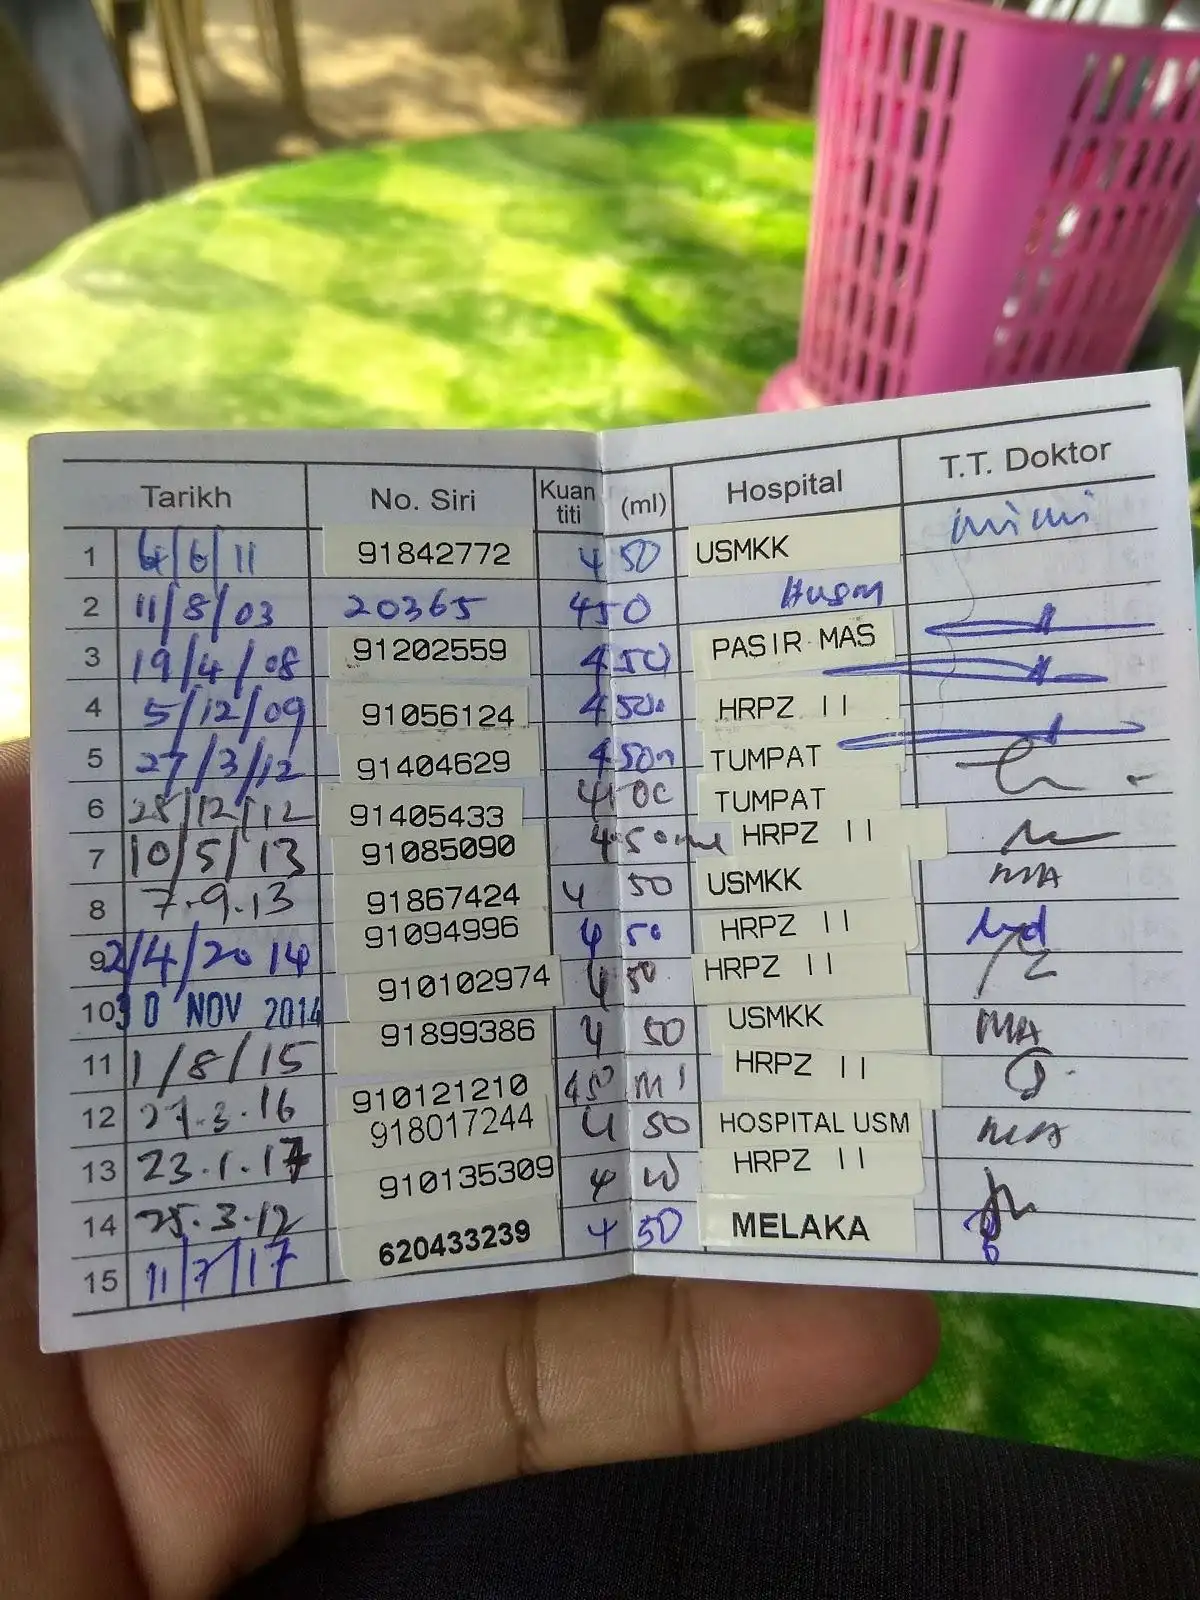 Tarikh No. Siri Kuantiti (ml) Hospital T.T. Doktor
1 6/6/11 91842772 450 USMKK mimi
2 11/8/03 20365 450 Husm
3 19/4/08 91202559 450 PASIR MAS
4 5/12/09 91056124 450 HRPZ II
5 27/3/12 91404629 450m TUMPAT
6 28/12/12 91405433 TUMPAT
7 10/5/13 91085090 450ml HRPZ II
8 7.9.13 91867424 450 USMKK MA
9 2/4/2014 91094996 450 HRPZ II
10 30 NOV 2014 910102974 450 HRPZ II
11 1/8/15 91899386 450 USMKK MA
12 27.3.16 910121210 450 ml HRPZ II
13 23.1.17 918017244 450 HOSPITAL USM MA
14 25.3.17 910135309 HRPZ II
15 11/7/17 620433239 450 MELAKA